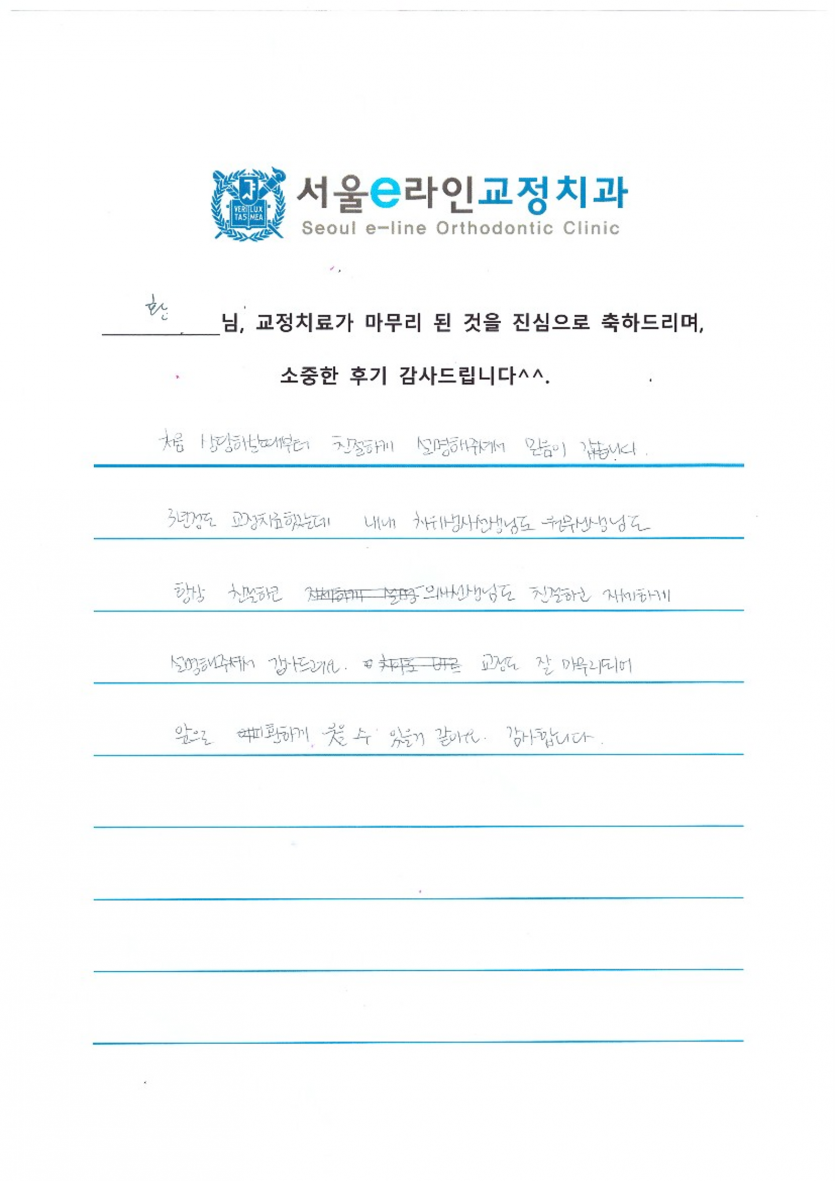 VERI LUX
TAS MEA
서울e라인교정치과
Seoul e-line Orthodontic Clinic
환
님, 교정치료가 마무리 된 것을 진심으로 축하드리며,
소중한 후기 감사드립니다^^.
처음 상담하실때부터 친절하게 설명해주셔서 믿음이 갔습니다.
3년정도 교정치료했는데 내내 치위생사선생님도 선생님도
항상 친절하고 의사선생님도 친절하고 자세하게
설명해주셔서 감사드려요. 교정도 잘 마무리되어
앞으로 환하게 웃을 수 있을거 같아요. 감사합니다.